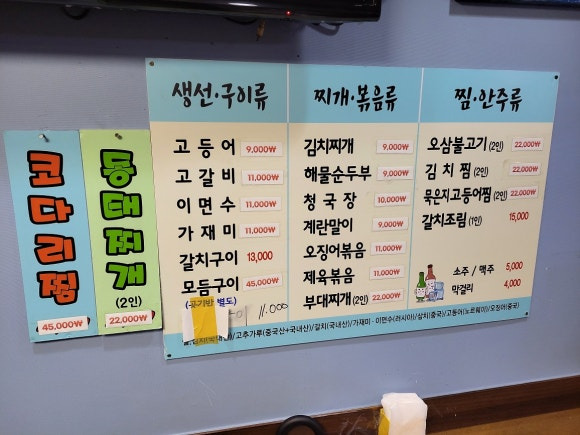 코다리찜
45,000₩
동태찌개
(2인)
22,000₩
생선·구이류
고등어 9,000₩
고갈비 11,000₩
이면수 11,000₩
가재미 11,000₩
갈치구이 13,000
모듬구이 45,000₩
(공기밥 별도)
구이 11.000
찌개·볶음류
김치찌개 9,000₩
해물순두부 9,000₩
청국장 10,000₩
계란말이 9,000₩
오징어볶음 11,000₩
제육볶음 11,000₩
부대찌개 (2인) 22,000₩
찜·안주류
오삼불고기 (2인) 22,000₩
김치찜 (2인) 22,000₩
묵은지고등어찜 (2인) 22,000₩
갈치조림 (1인) 15,000
소주 / 맥주 5,000
막걸리 4,000
/고추가루(중국산+국내산)/갈치(국내산)/가재미·이면수(러시아)/삼치(중국)/고등어(노르웨이)/오징어(중국)